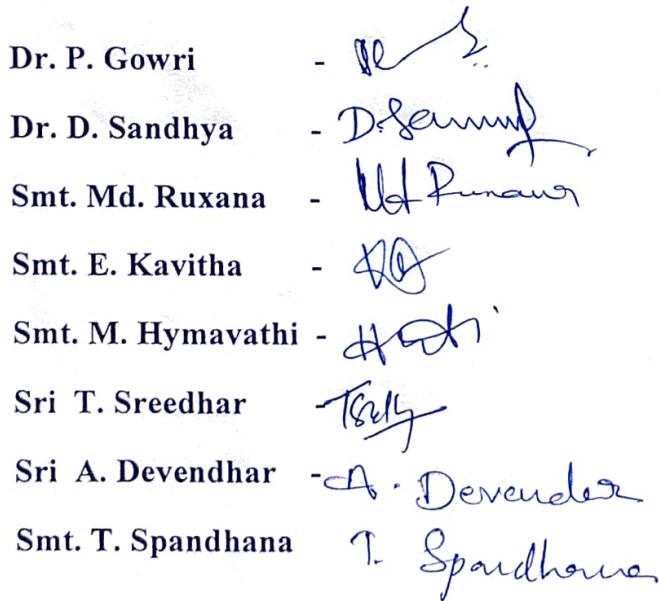 Dr. P. Gowri -
Dr. D. Sandhya -
Smt. Md. Ruxana -
Smt. E. Kavitha -
Smt. M. Hymavathi -
Sri T. Sreedhar -
Sri A. Devendhar - A. Devender
Smt. T. Spandhana T. Spandhana